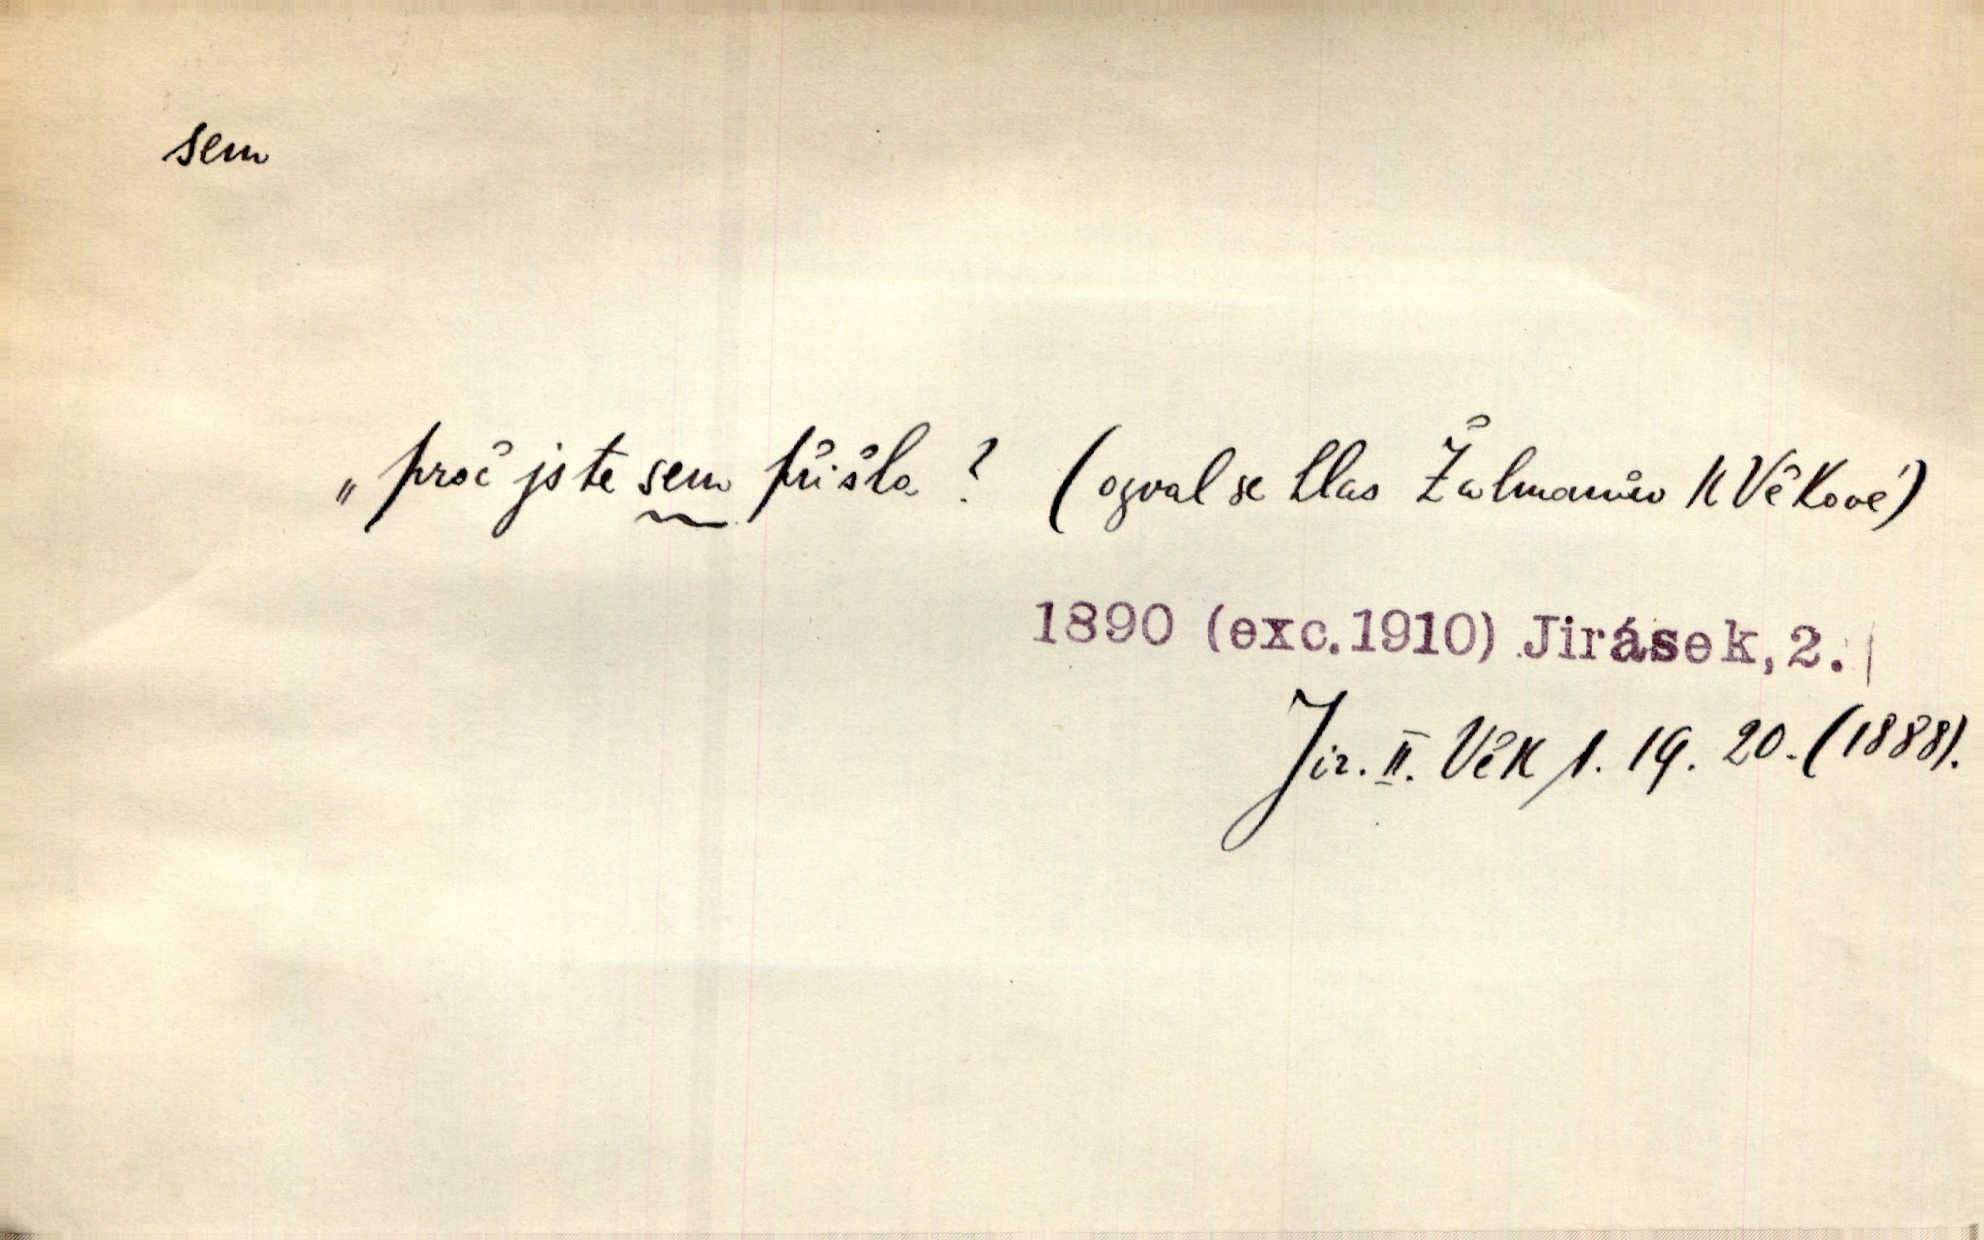 sem
„proč jste sem přišla? (ozval se hlas Žalmanův k Věkové)
1890 (exc.1910) Jirásek,2.
Jir. II. Věk 1. 19. 20. (1888).